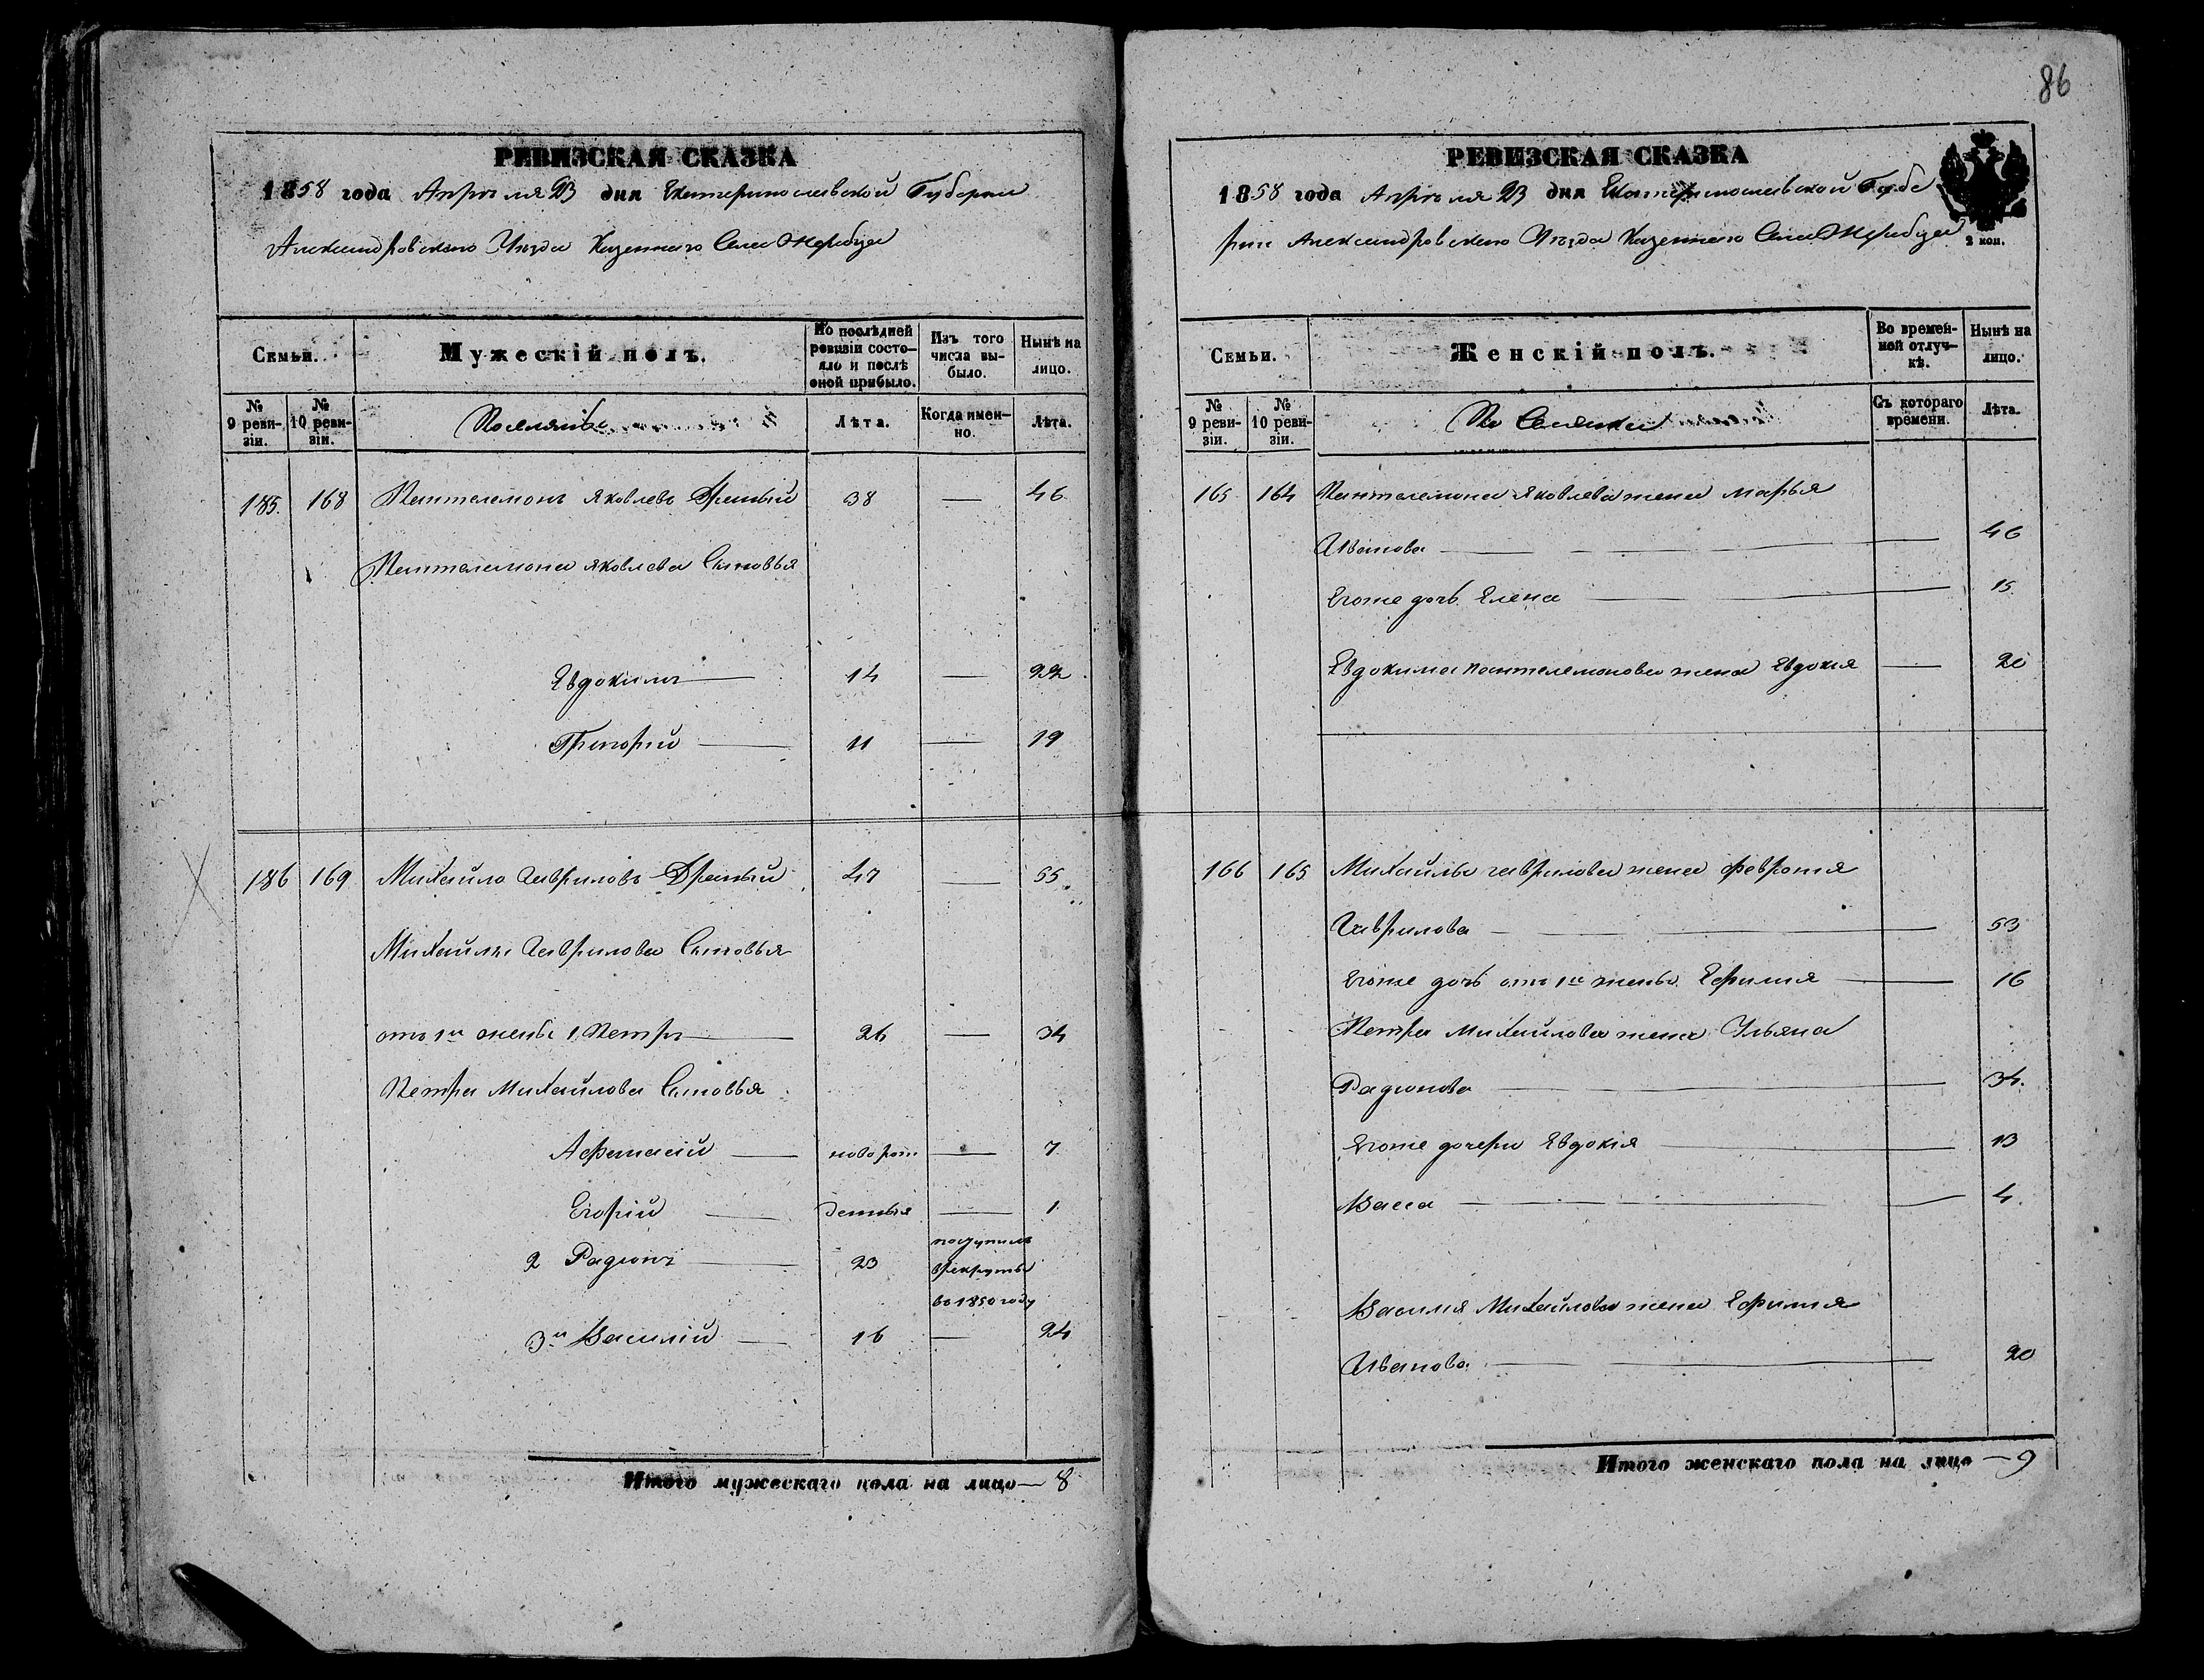 86
РЕВИЗСКАЯ СКАЗКА
1858 года Апрѣля 23 дня Екатеринославской Губернии
Александровскаго Уезда Казеннаго Села Жеребца
Семьи.
Мужескій полъ.
По послѣдней ревизіи состояло и послѣ оной прибыло.
Изъ того числа выбыло.
Нынѣ на лицо.
№ 9 ревизіи.
№ 10 ревизіи.
Поселяне
Лѣта.
Когда именно.
Лѣта.
185. 168 Пантелемонъ Яковлевъ 38 — 46
Пантелемона Яковлева Сыновья
Евдокимъ — 14 — 22
Григорий — 11 — 19
186 169 Михайло Гавриловъ 47 — 55
Михайлы Гаврилова Сыновья
отъ 1й жены 1 Петръ — 26 — 34
Петра Михайлова Сыновья
Афанасий — новорож — 7
Егорій — — 1
2 Радионъ — 23 поступилъ
в рекруты
во 1850 году
3й Василій — 16 — 24
Итого мужескаго пола на лицо — 8
РЕВИЗСКАЯ СКАЗКА
1858 года Апрѣля 23 дня Екатеринославской Губе
рнии Александровскаго Уезда Казеннаго Села Жеребца
2 коп.
Семьи.
Женскій полъ.
Во временной отлучкѣ.
Нынѣ на лицо.
№ 9 ревизіи.
№ 10 ревизіи.
По Селянки
Съ котораго времени.
Лѣта.
165 164 Пантелемона Яковлева жена Марья
Иванова — — 46
Егоже дочь Елена — 15
Евдокима Пантелемонова жена Евдокия — 20
166 165 Михайлы Гаврилова жена Феврония
Гаврилова — 53
Егоже дочь отъ 1й жены Ефимия — 16
Петра Михайлова жена Ульяна
Радионова — 34.
Егоже дочери Евдокія — 13
Васса — — 4.
Василия Михайлова жена Ефимия
Иванова. — 20
Итого женскаго пола на лицо — 9